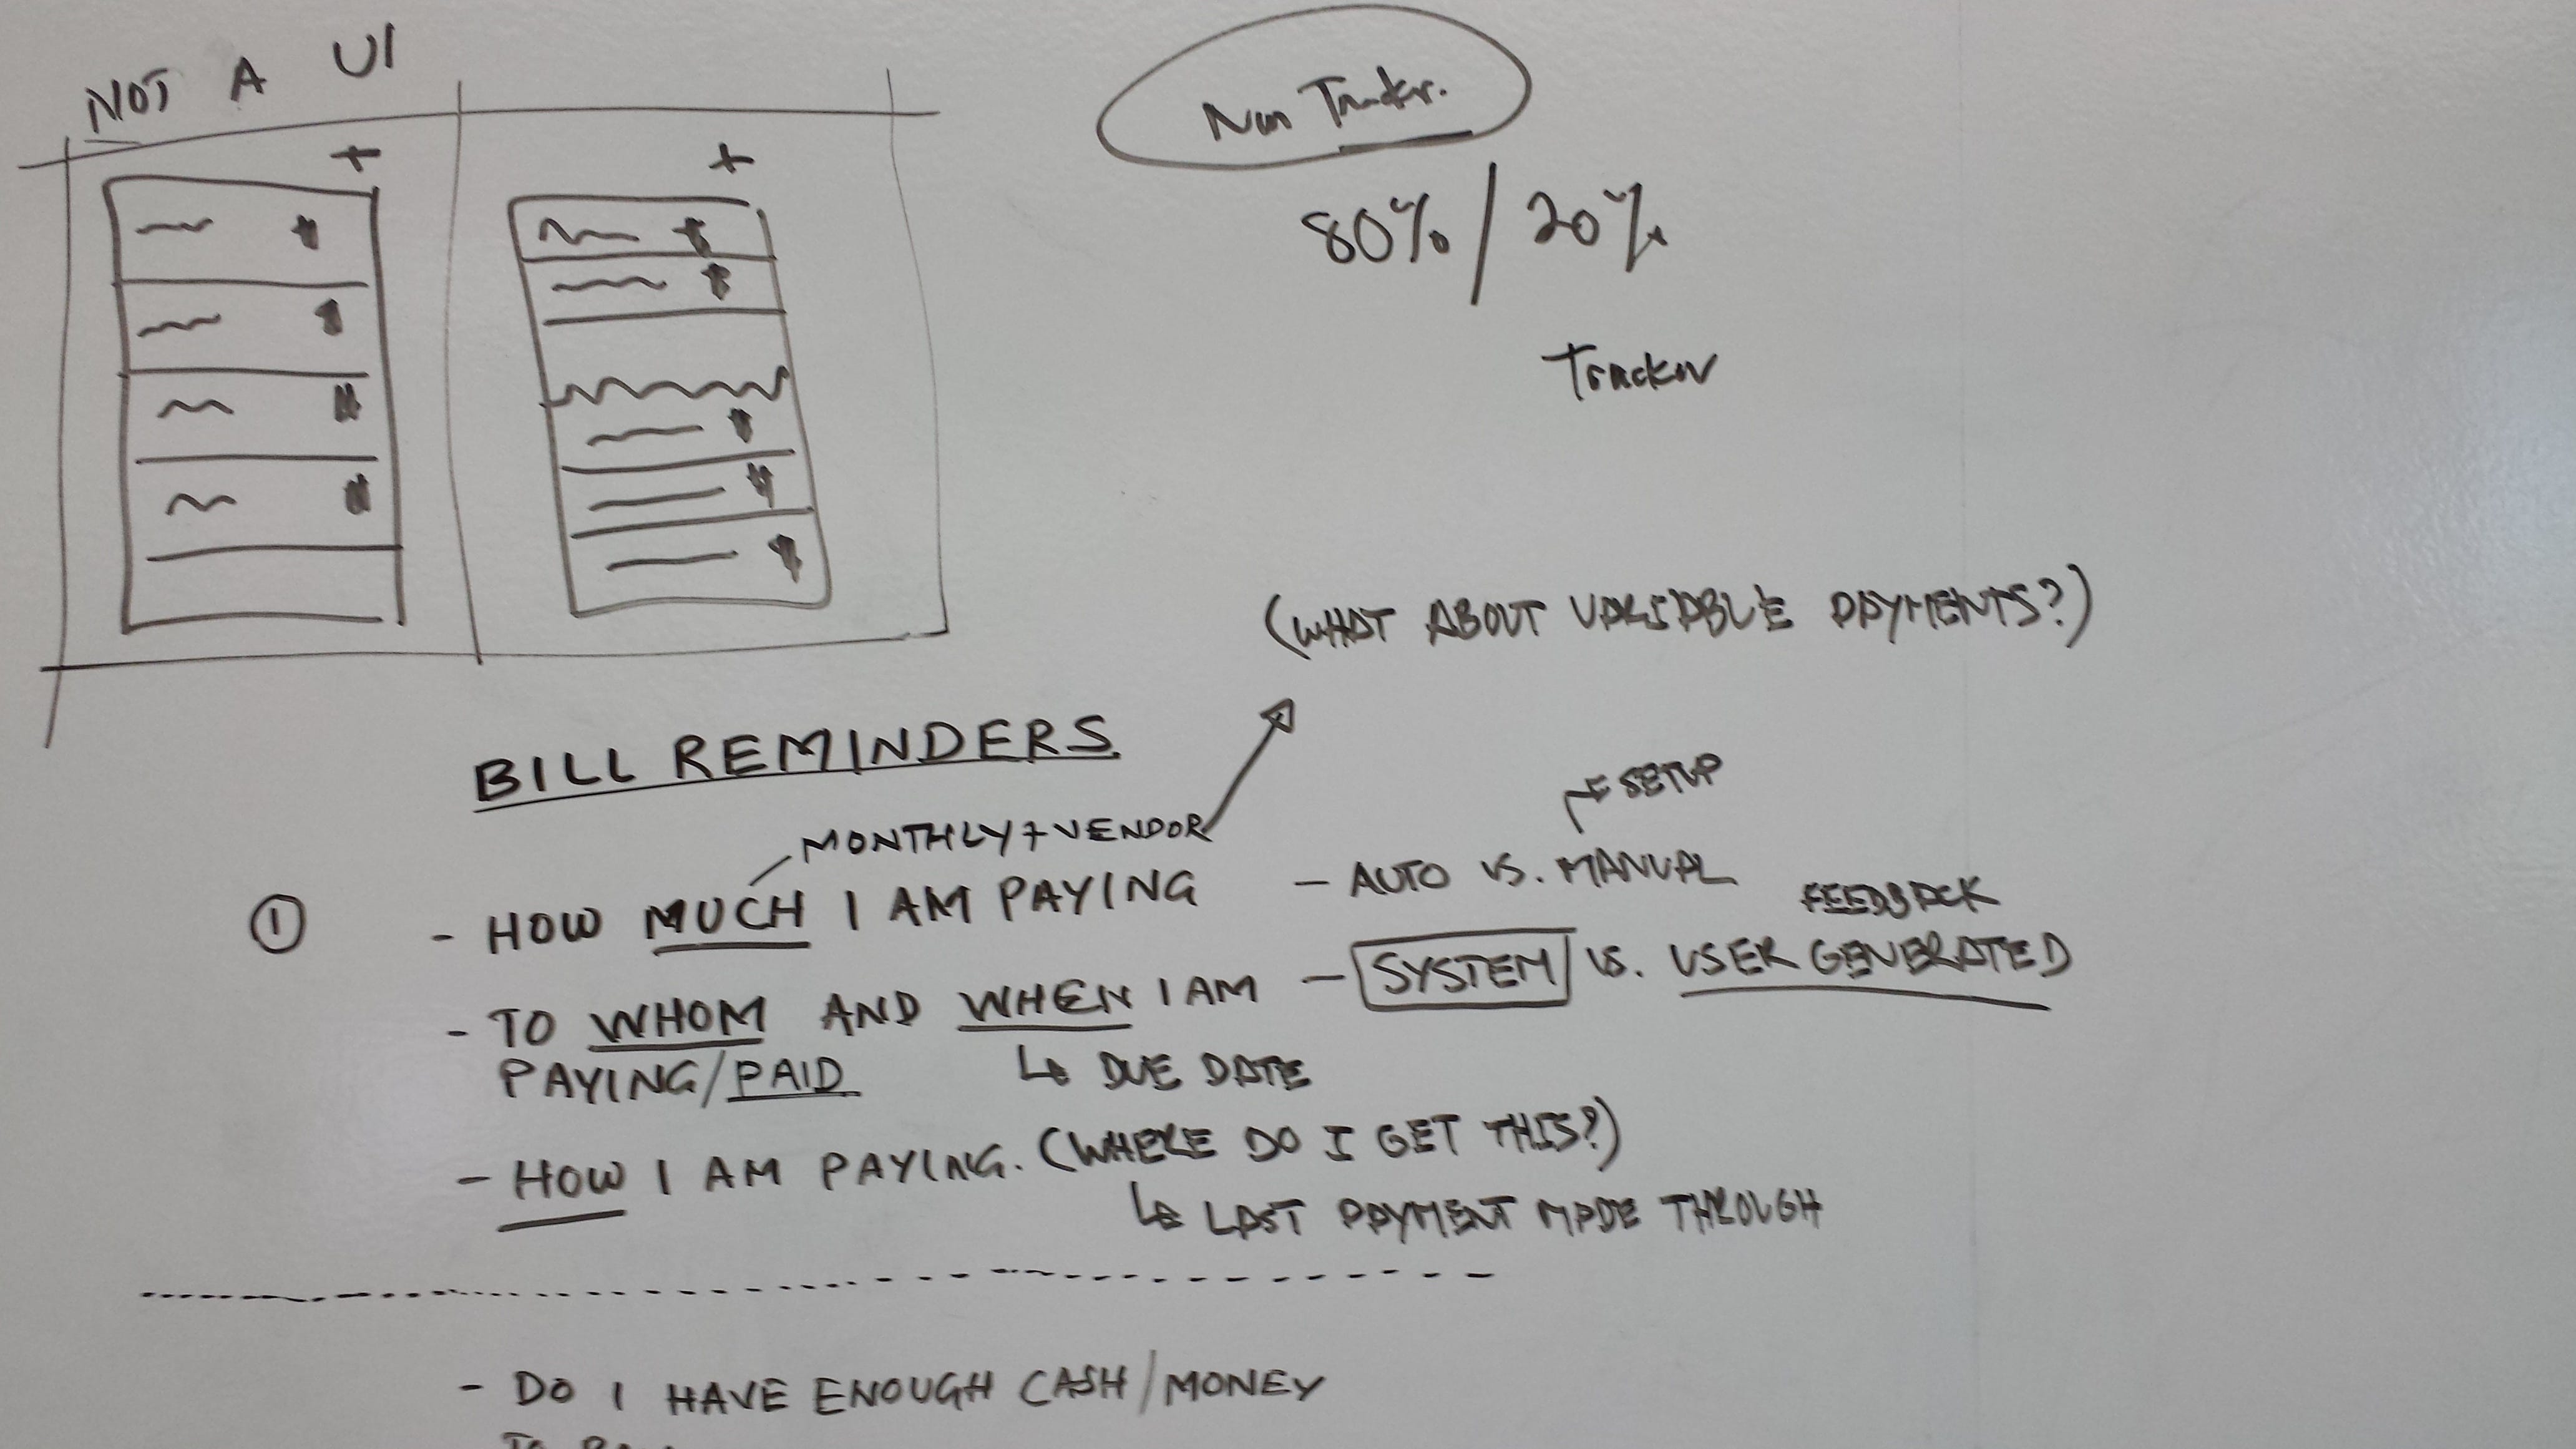 NOT A UI
+
+
Non Tracker.
80% / 20%
Tracker
(WHAT ABOUT VARIABLE PAYMENTS?)
BILL REMINDERS
MONTHLY + VENDOR
SETUP
① - HOW MUCH I AM PAYING
- AUTO VS. MANUAL
FEEDBACK
- TO WHOM AND WHEN I AM
PAYING/PAID
- SYSTEM VS. USER GENERATED
↳ DUE DATE
- HOW I AM PAYING. (WHERE DO I GET THIS?)
↳ LAST PAYMENT MADE THROUGH
- DO I HAVE ENOUGH CASH/MONEY